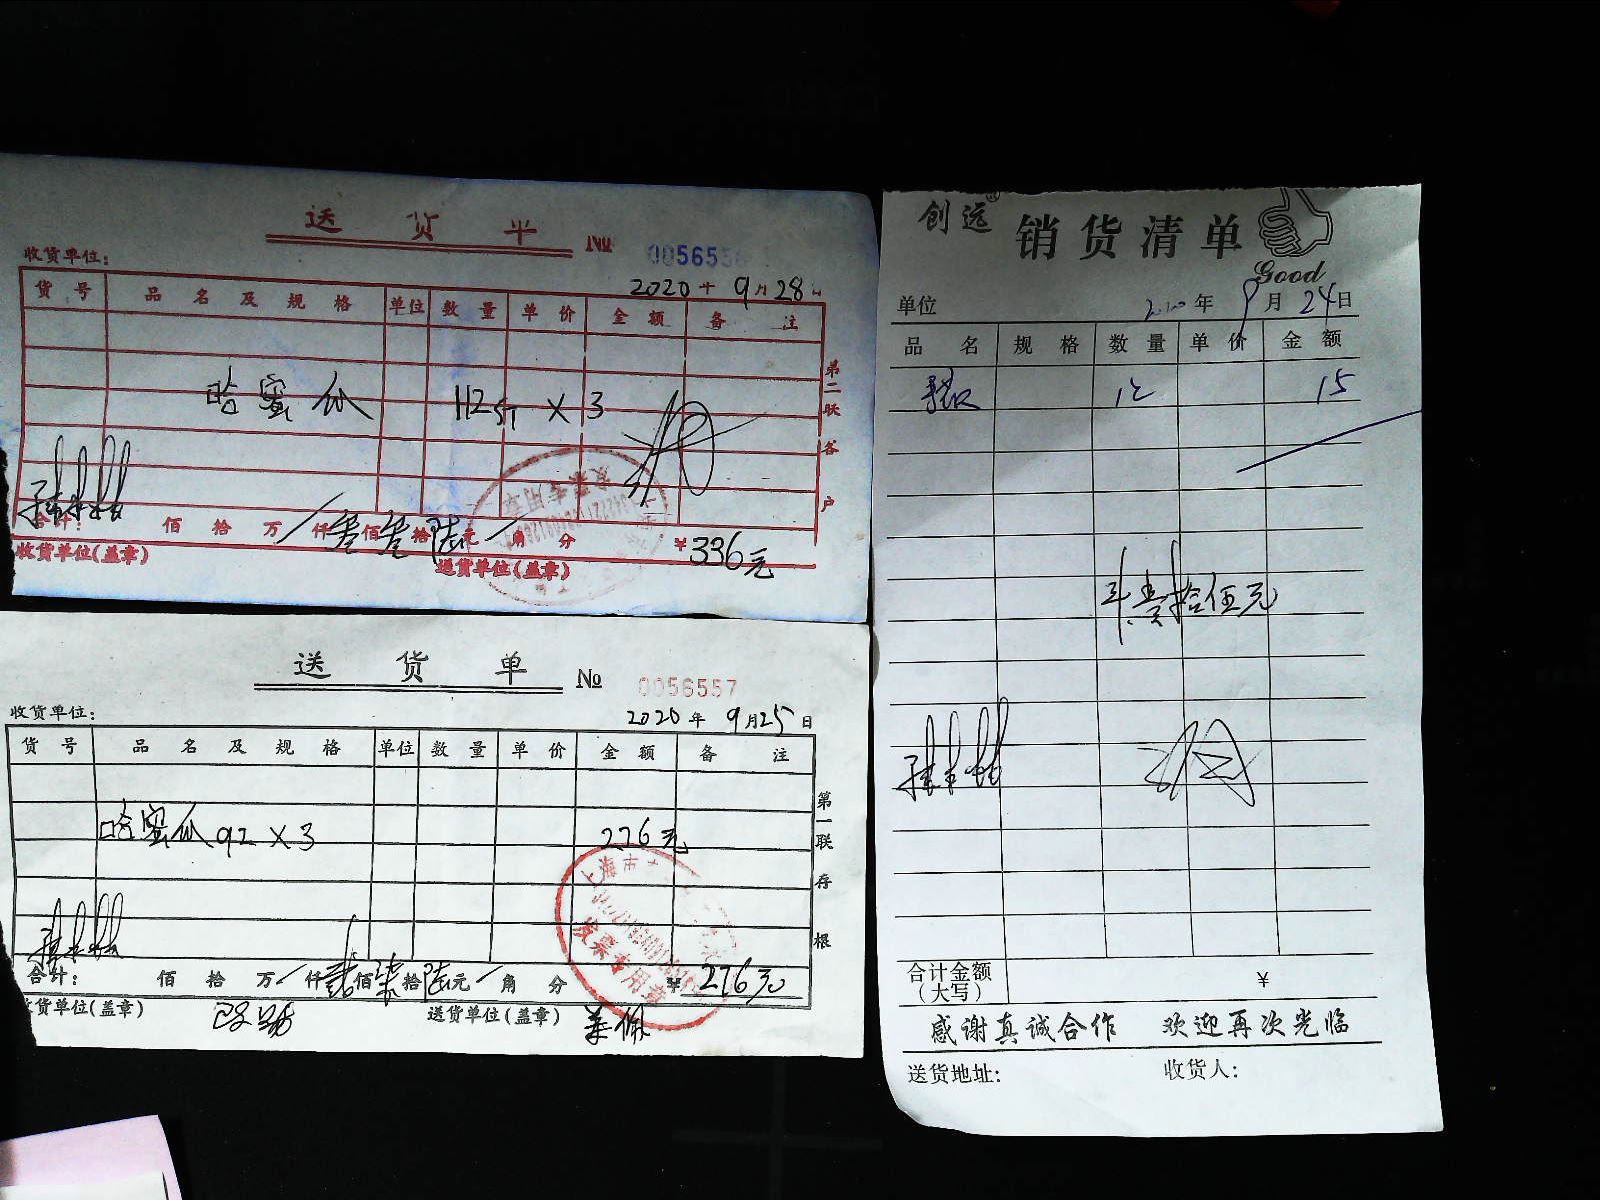 送 货 单 No 005655
收货单位:
2020年 9月28日
货号 品名及规格 单位 数量 单价 金额 备注
哈蜜瓜 112斤 × 3
第二联 客户
合计: 佰 拾 万 / 仟 叁佰 叁拾 陆元 / 角 分 ¥336元
收货单位(盖章) 送货单位(盖章)
发票专用章
送 货 单 No 0056557
收货单位:
2020年 9月25日
货号 品名及规格 单位 数量 单价 金额 备注
哈蜜瓜 92 × 3 276元
第一联 存根
上海市
发票专用章
合计: 佰 拾 万 / 仟 贰佰 柒拾 陆元 / 角 分 ¥276元
收货单位(盖章) 送货单位(盖章)
创远 销货清单
Good
单位 年 9月 24日
品名 规格 数量 单价 金额
15
壹拾伍元
合计金额(大写) ¥
感谢真诚合作 欢迎再次光临
送货地址: 收货人: